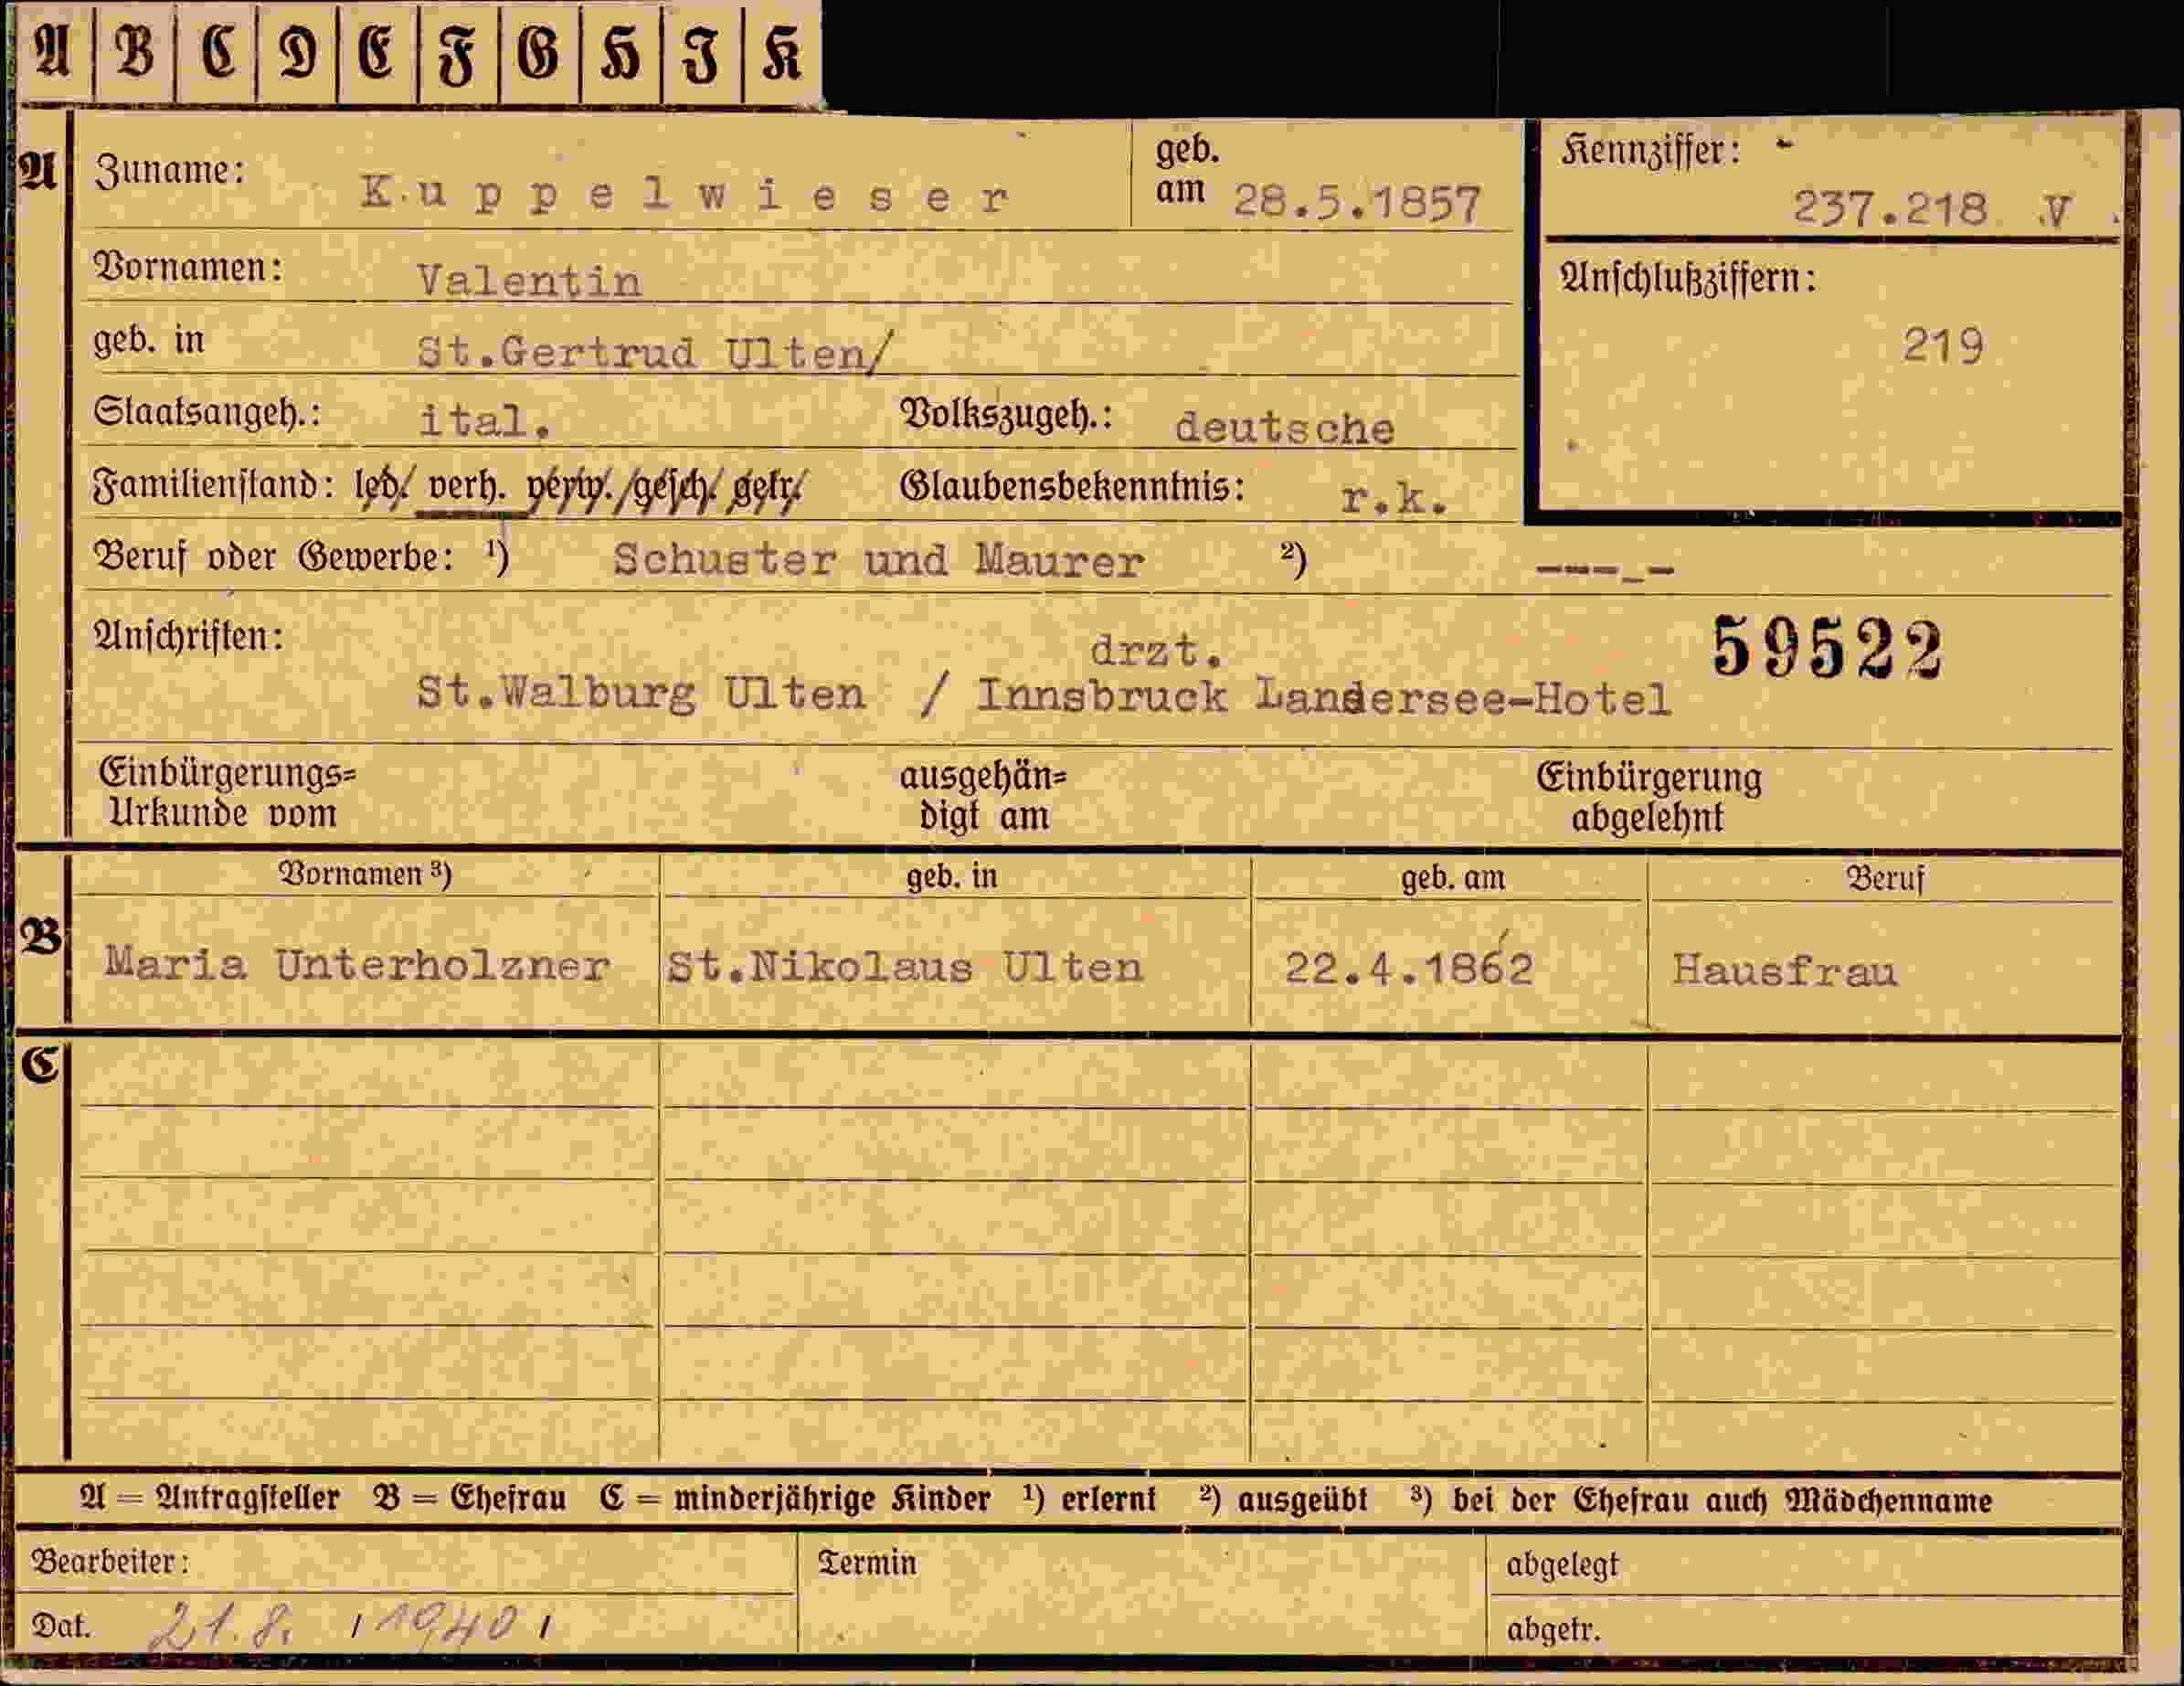 A B C D E F G H I K
A Zuname: Kuppelwieser geb. am 28.5.1857 Kennziffer: 237.218 V
Vornamen: Valentin Anschlußziffern:
geb. in St.Gertrud Ulten/ 219
Staatsangeh.: ital. Volkszugeh.: deutsche
Familienstand: led. verh. verw. gesch. getr. Glaubensbekenntnis: r.k.
Beruf oder Gewerbe: ¹) Schuster und Maurer ²) ---_-
Anschriften: drzt. 59522
St.Walburg Ulten / Innsbruck Landersee-Hotel
Einbürgerungs= ausgehän= Einbürgerung
Urkunde vom digt am abgelehnt
Vornamen ³) geb. in geb. am Beruf
B Maria Unterholzner St.Nikolaus Ulten 22.4.1862 Hausfrau
C
A = Antragsteller B = Ehefrau C = minderjährige Kinder ¹) erlernt ²) ausgeübt ³) bei der Ehefrau auch Mädchenname
Bearbeiter: Termin abgelegt
Dat. 21.8. / 1940 / abgetr.